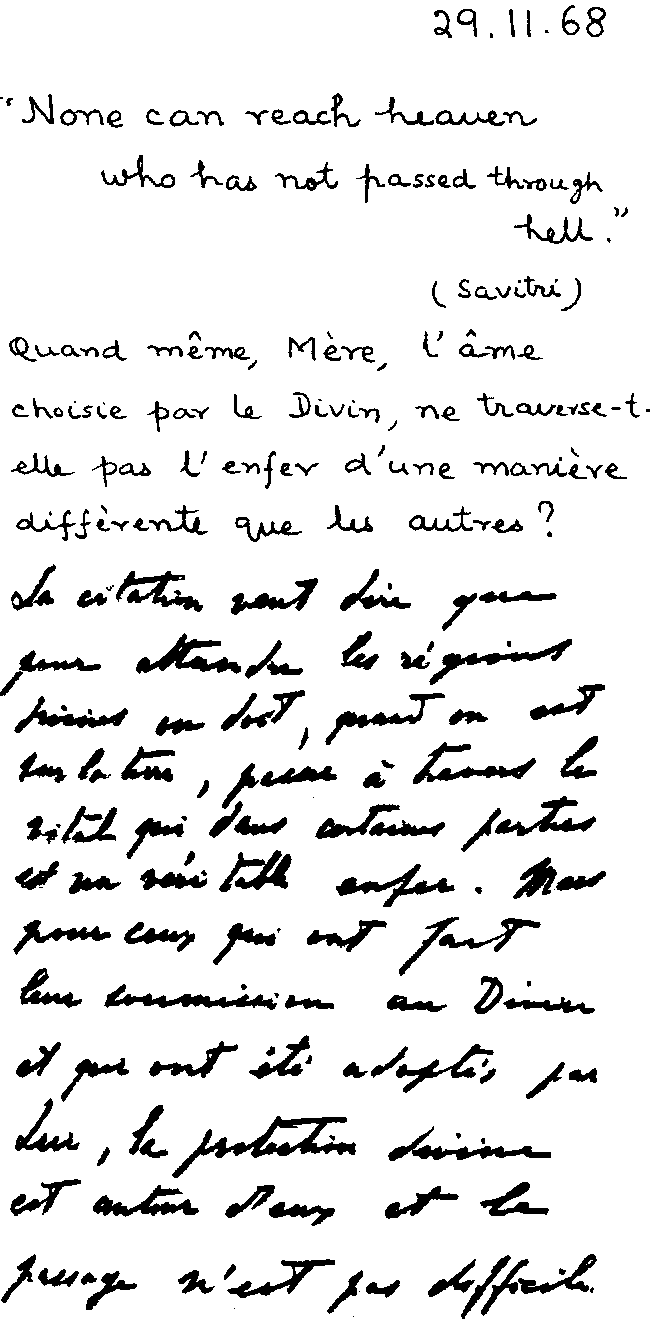 29.11.68
"None can reach heaven
who has not passed through
hell."
(Savitri)
Quand même, Mère, l'âme
choisie par le Divin, ne traverse-t-
elle pas l'enfer d'une manière
diffèrente que les autres?
La citation veut dire que
pour atteindre les régions
divines on doit, quand on est
sur la terre, passer à travers le
vital qui dans certaines parties
est un véritable enfer. Mais
pour ceux qui ont fait
leur soumission au Divin
et qui ont été adoptés par
Lui, la protection divine
est autour d'eux et le
passage n'est pas difficile.